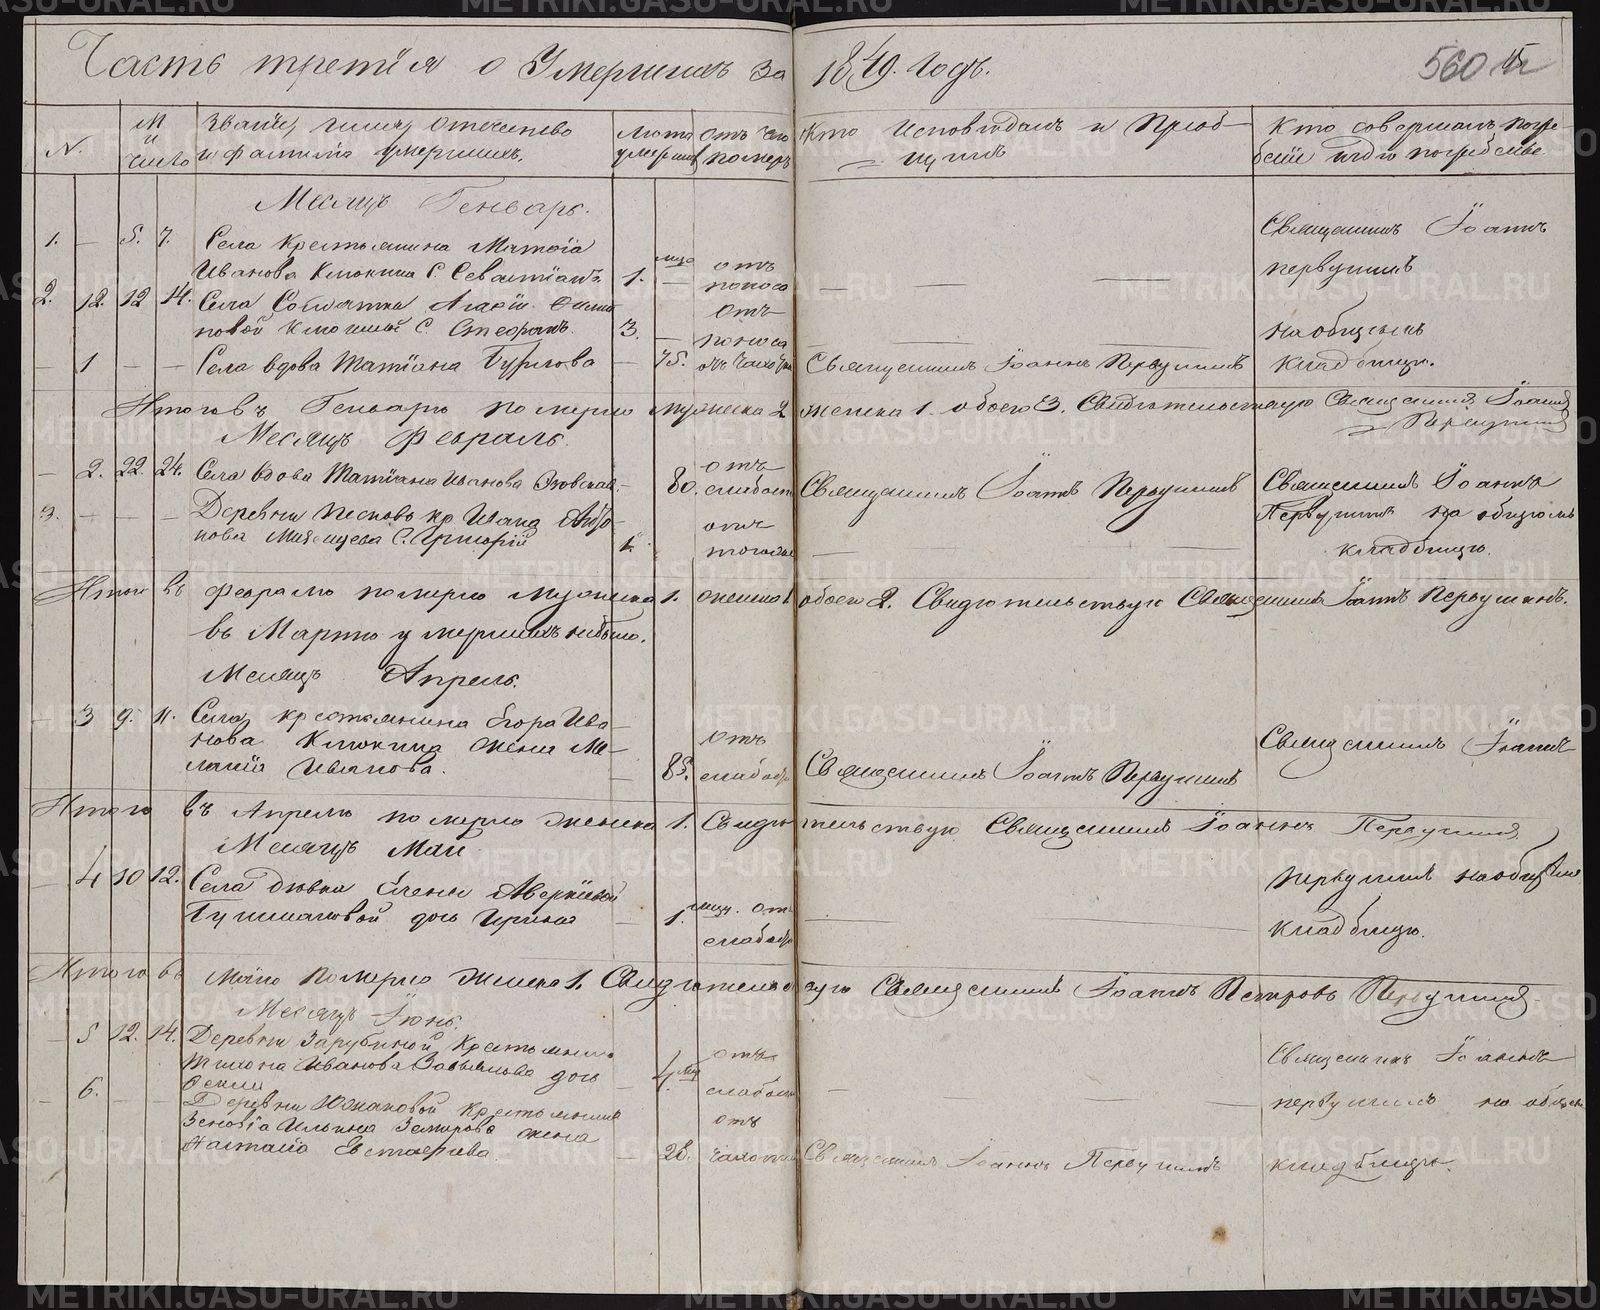 Часть третія о Умершихъ за 1849. Годъ.
560
N.
М и число
Званіе, имя, отечество и фамилія умершихъ.
Лета умерших
отъ чего померъ
Кто Исповедалъ и Пріоб-
щилъ
Кто совершалъ погре-
беніе и где погребены
Месяцъ Генварь.
1. — 5. 7. Села Крестьянина Матвѣя
Иванова Клюкина С. Севастіанъ 1. отъ поноса
Священникъ Іоаннъ
Первушинъ
2. 12. 12 14. Села Солдатки
Клюкиной С. Стефанъ. 3. отъ поноса
на общемъ
— 1 — — Села вдова Татіана — 75. отъ чахотки Священникъ Іоаннъ Первушинъ кладбище.
Итого въ Генваре померло мужеска 2 женска 1. обоего 3. Свидетельствую Священникъ Іоаннъ
Первушинъ
Месяцъ Февраль.
— 2. 22. 24. Села вдова Татіана Иванова — 80. отъ слабости Священникъ Іоаннъ Первушинъ Священникъ Іоаннъ
Первушинъ на общемъ
3. — — — Деревни Песковъ кр Ивана
С. Григорій 1. отъ
кладбище.
Итого въ Феврале померло мужеска 1. женска 1 обоего 2. Свидетельствую Священникъ Іоаннъ Первушинъ.
въ Марте умершихъ небыло.
Месяцъ Апрель.
— 3 9. 11. Села крестьянина Егора Ива-
нова Клюкина жена Ме-
ланія Иванова. — 85. отъ слабости Священникъ Іоаннъ Первушинъ
Священникъ Іоаннъ
Итого въ Апреле померло женска 1. Свидетельствую Священникъ Іоаннъ Первушинъ
Месяцъ Май
— 4 10 12. Села девки Елены Аверкіевой
дочь Ирина — 1. отъ слабости
Первушинъ на общемъ
кладбище.
Итого въ Маіе померло женска 1. Свидетельствую Священникъ Іоаннъ Петровъ Первушинъ
Месяцъ Іюнь.
— 5 12. 14. Деревни Зарубиной Крестьянина
Тихона Иванова Завьялова дочь
4. отъ слабости
Священникъ Іоаннъ
— 6. — — Деревни Южаковой Крестьянина
Зеновія Ильина жена
Наталія Евстафіева. — 28. отъ чахотки Священникъ Іоаннъ Первушинъ
Первушинъ на общемъ
кладбище.
METRIKI.GASO-URAL.RU